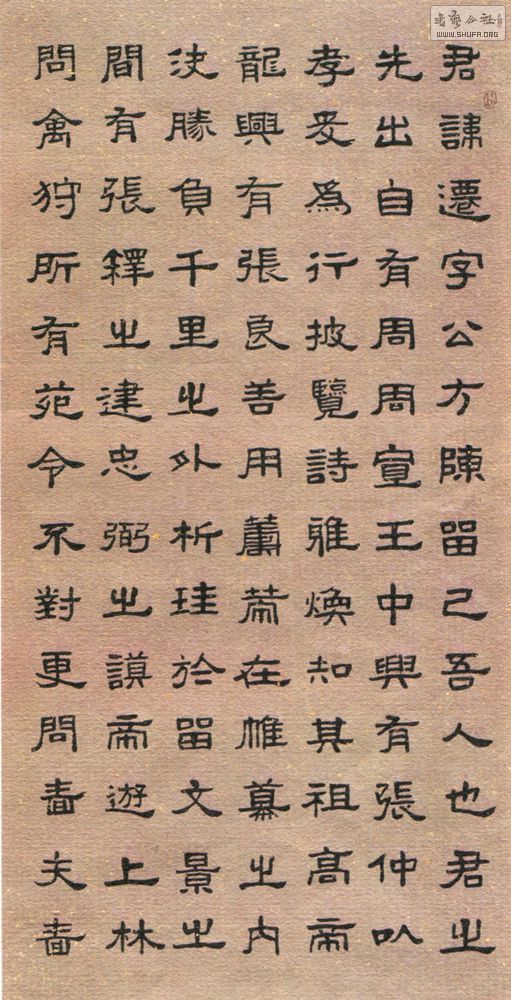 君諱遷字公方陳留己吾人也君之
先出自有周周宣王中興有張仲以
孝友爲行披覽詩雅煥知其祖高帝
龍興有張良善用籌策在帷幕之内
決勝負千里之外析珪於留文景之
間有張釋之建忠弼之謨帝遊上林
問禽狩所有苑令不對更問嗇夫嗇
WWW.SHUFA.ORG